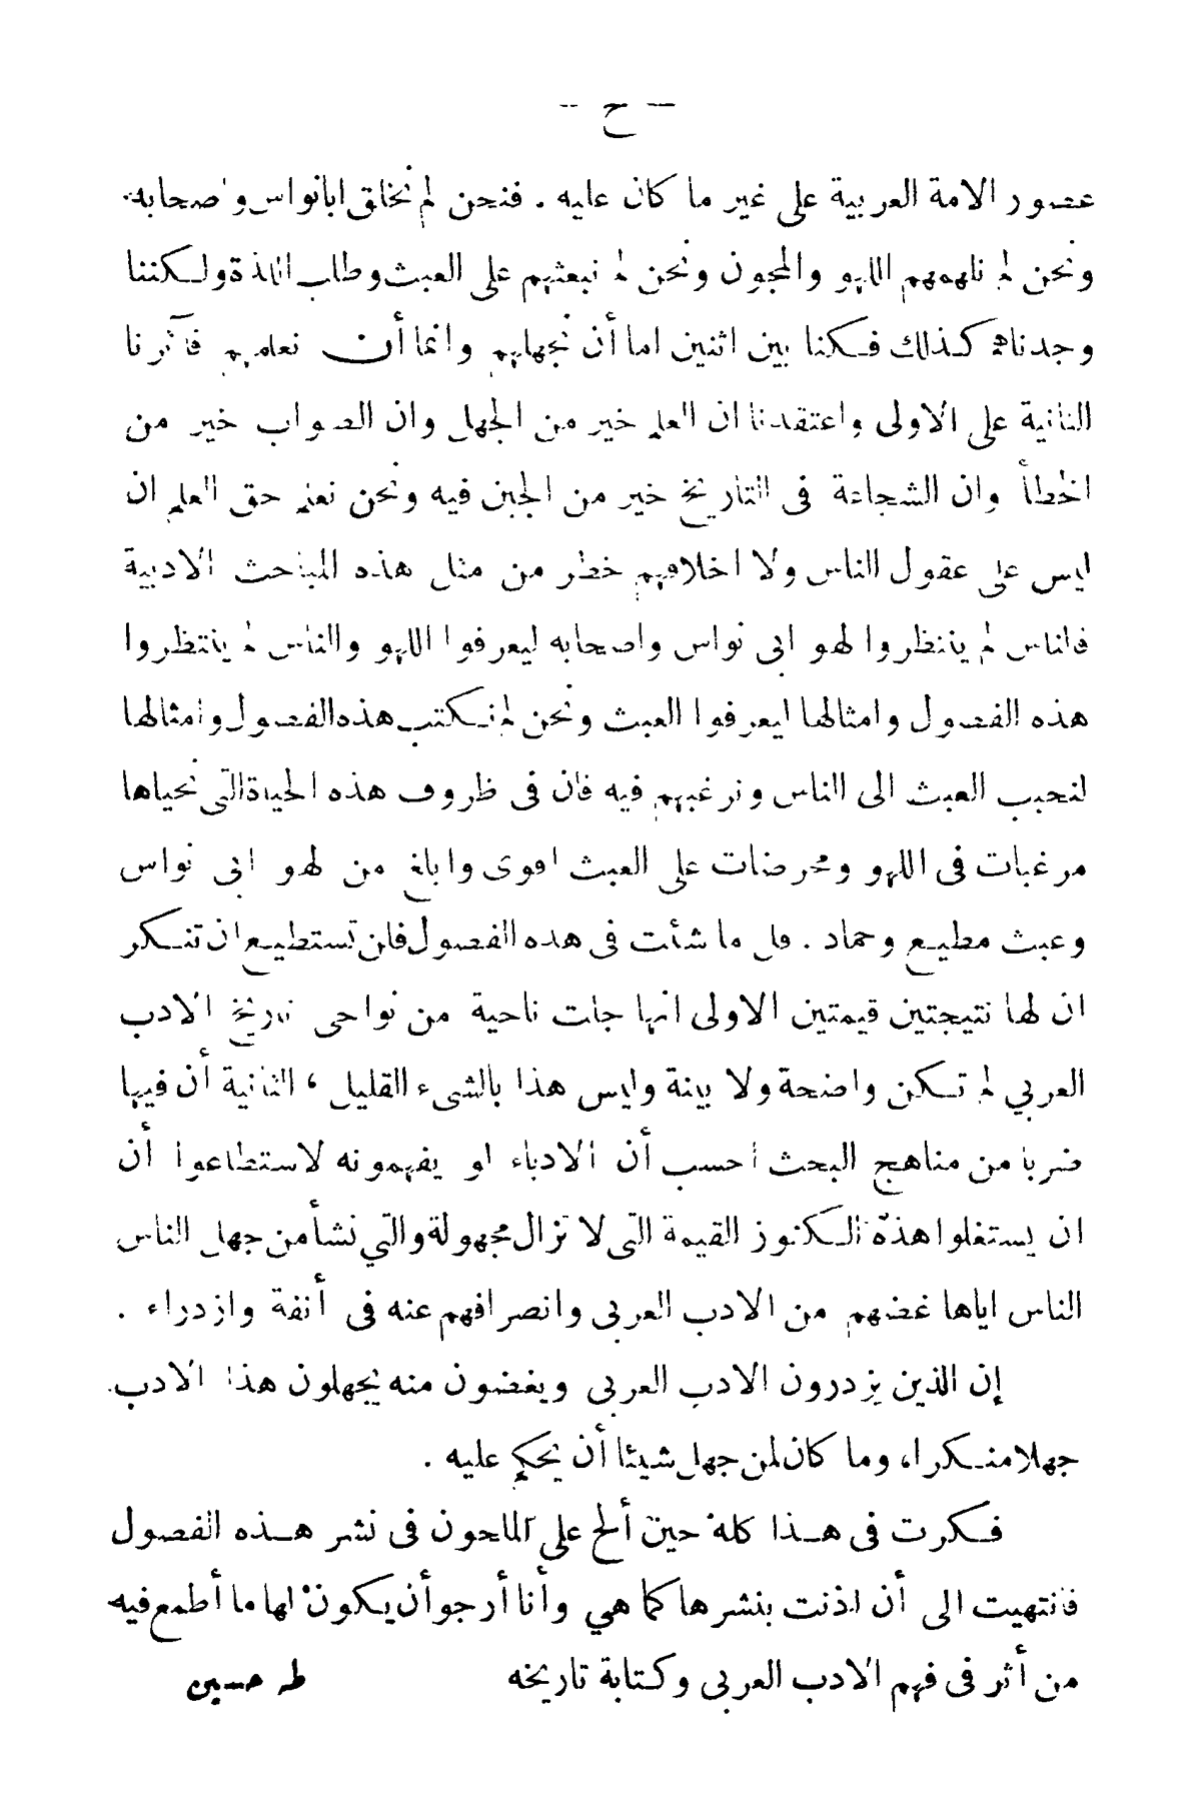 — ح —
عصور الامة العربية على غير ما كان عليه . فنحن لم نخلق ابانواس واصحابه
ونحن لم نلهمهم اللهو والمجون ونحن لم نبعثهم على العبث وطلب اللذة ولكننا
وجدناهم كذلك فكنا بين اثنين اما أن نجهلهم وانما أن نعلمهم فآثرنا
الثانية على الاولى واعتقدنا ان العلم خير من الجهل وان الصواب خير من
الخطأ وان الشجاعة فى التاريخ خير من الجبن فيه ونحن نعلم حق العلم ان
ليس على عقول الناس ولا اخلاقهم خطر من مثل هذه المباحث الادبية
فالناس لم ينتظروا لهو ابى نواس واصحابه ليعرفوا اللهو والناس لم ينتظروا
هذه الفصول وامثالها ليعرفوا العبث ونحن لم نكتب هذه الفصول وامثالها
لنحبب العبث الى الناس ونرغبهم فيه فان فى ظروف هذه الحياة التى نحياها
مرغبات فى اللهو ومحرضات على العبث اقوى وابلغ من لهو ابى نواس
وعبث مطيع وحماد . قل ما شئت فى هذه الفصول فلن تستطيع ان تنكر
ان لها نتيجتين قيمتين الاولى انها جلت ناحية من نواحى تاريخ الادب
العربي لم تكن واضحة ولا بينة وليس هذا بالشىء القليل ، الثانية أن فيها
ضربا من مناهج البحث احسب أن الادباء لو يفهمونه لاستطاعوا أن
ان يستغلوا هذه الكنوز القيمة التى لا تزال مجهولة والتي نشأ من جهل الناس
الناس اياها غضهم من الادب العربى وانصرافهم عنه فى أنفة وازدراء .
إن الذين يزدرون الادب العربى ويغضون منه يجهلون هذا الادب
جهلا منكرا، وما كان لمن جهل شيئا أن يحكم عليه .
فكرت فى هذا كله حين ألح على الملحون فى نشر هذه الفصول
فانتهيت الى أن اذنت بنشرها كما هي وأنا أرجو أن يكون لها ما أطمع فيه
من أثر فى فهم الادب العربى وكتابة تاريخه طه حسين